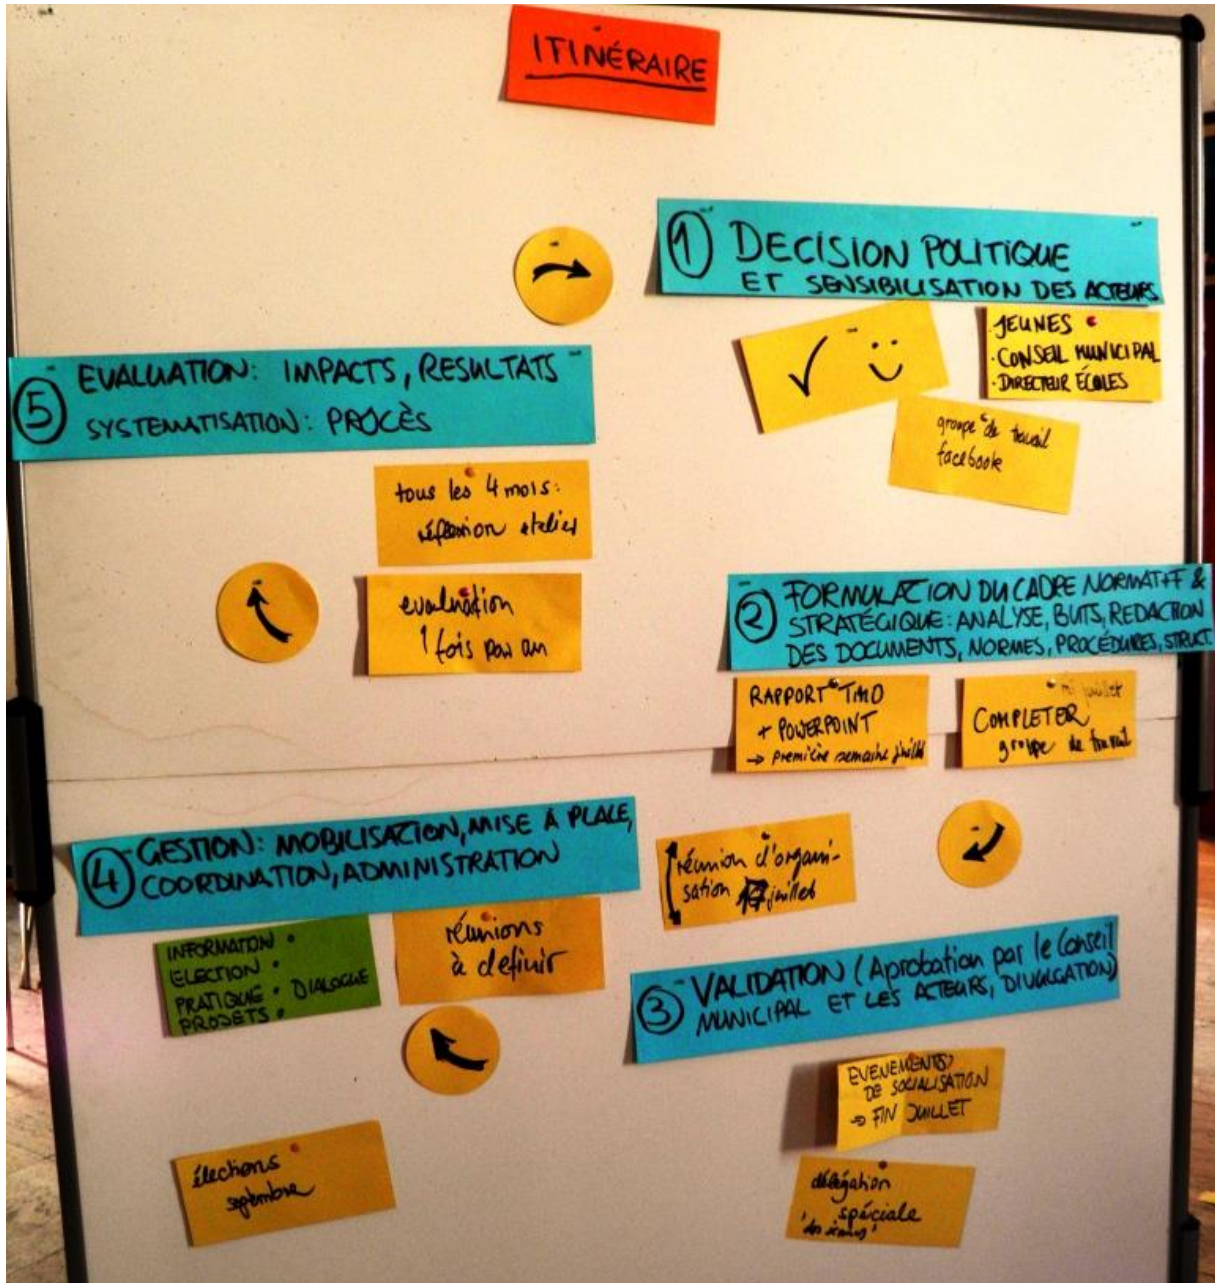 ITINÉRAIRE
1 DECISION POLITIQUE
ET SENSIBILISATION DES ACTEURS
JEUNES
• CONSEIL MUNICIPAL
• DIRECTEUR ÉCOLES
groupe de travail
facebook
2 FORMULATION DU CADRE NORMATIF &
STRATÉGIQUE: ANALYSE, BUTS, REDACTION
DES DOCUMENTS, NORMES, PROCÉDURES, STRUCT.
RAPPORT
+ POWERPOINT
→ première semaine juillet
mi juillet
COMPLETER
groupe de travail
réunion d'organi-
sation juillet
3 VALIDATION (Aprobation par le Conseil
MUNICIPAL ET LES ACTEURS, DIVULGATION)
EVENEMENTS
DE SOCIALISATION
→ FIN JUILLET
délégation
spéciale
4 GESTION: MOBILISATION, MISE À PLACE,
COORDINATION, ADMINISTRATION
INFORMATION •
ELECTION •
PRATIQUE • DIALOGUE
PROJETS •
réunions
à definir
élections
septembre
5 EVALUATION: IMPACTS, RESULTATS
SYSTEMATISATION: PROCÈS
tous les 4 mois:
réflexion atelier
evaluation
1 fois par an